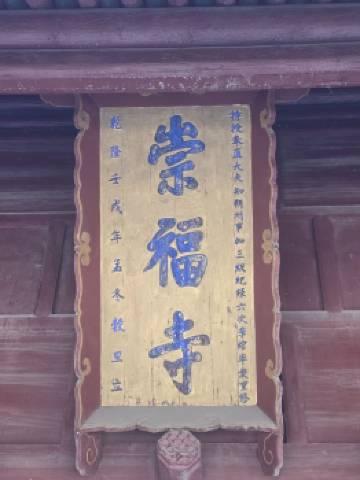 特授奉直大夫知朔州事加三級紀錄六次李绾率眾重修
崇福寺
乾隆壬戌年孟冬穀旦立